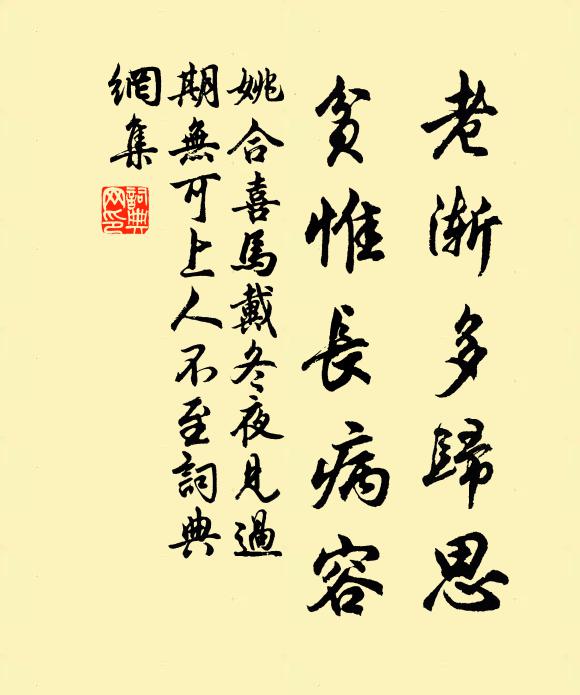 老漸多歸思
貧惟長病容
姚合喜馬戴冬夜見過
期無可上人不至詞典
網集
詞典網印